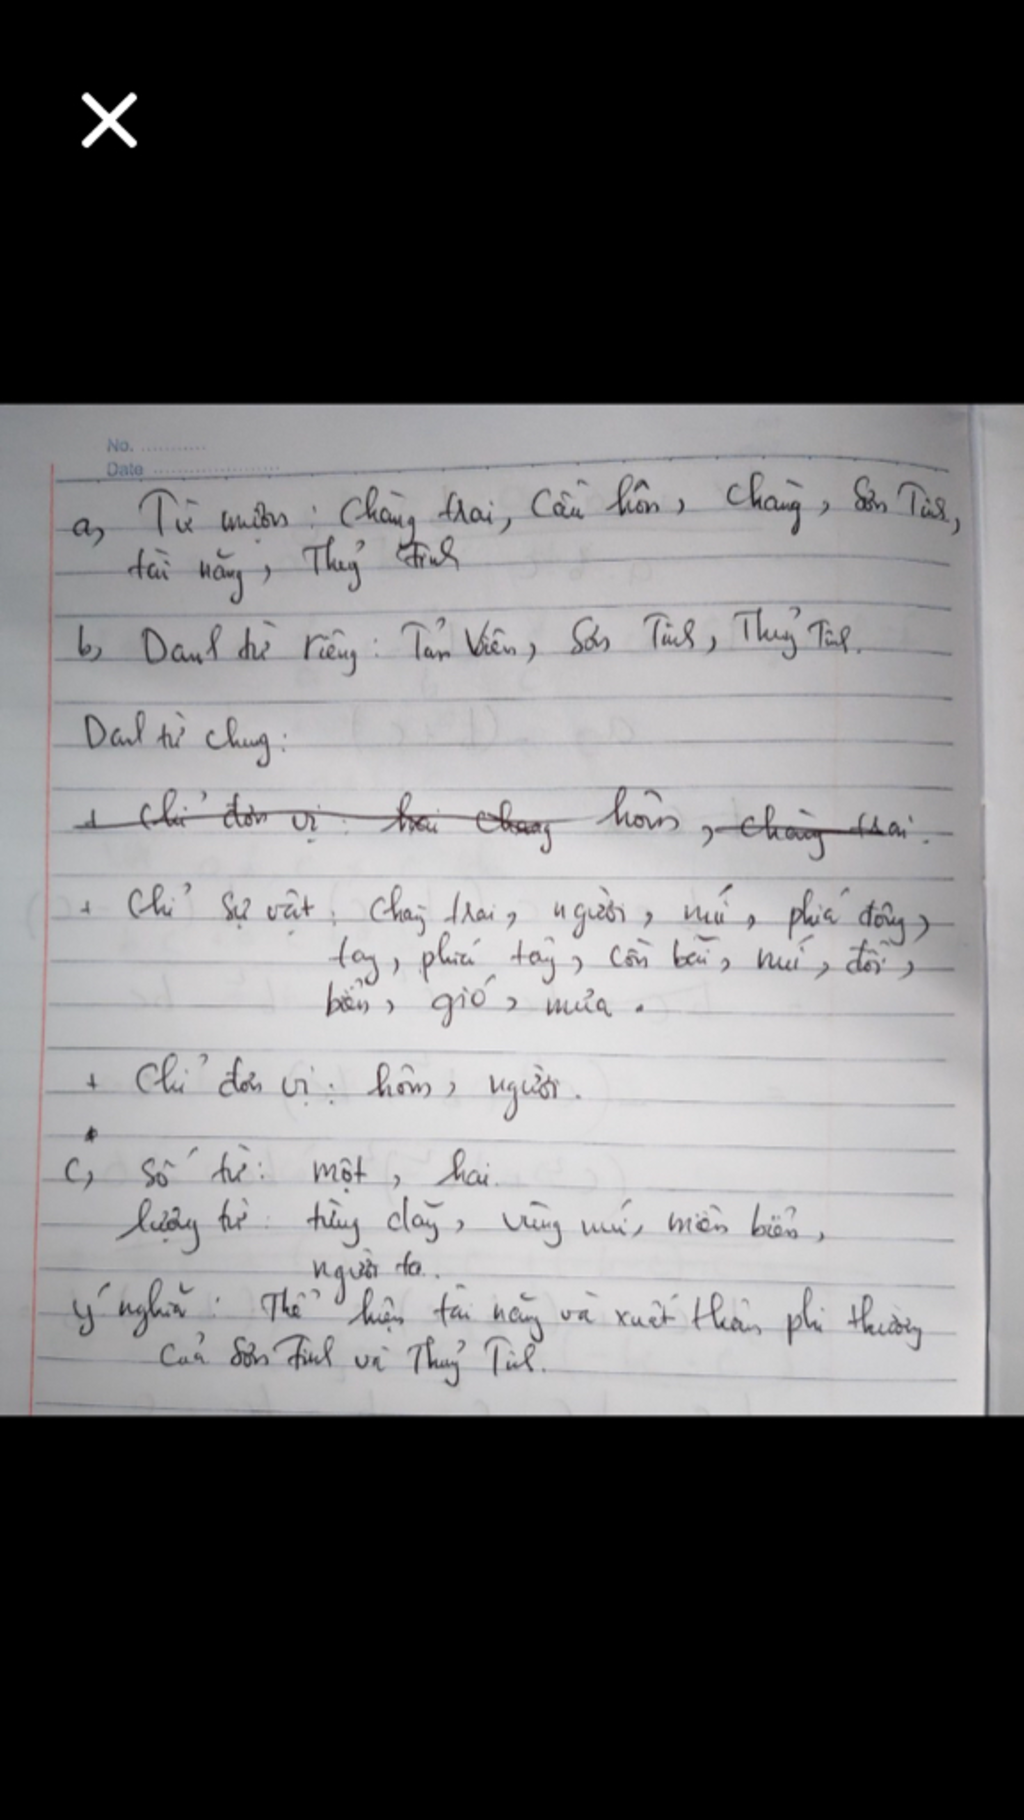 No. ...........
Date .......................
a, Từ mượn : Chàng trai, Cầu hôn, Chàng, Sơn Tinh,
tài năng, Thuỷ Tinh
b, Danh từ riêng : Tản Viên, Sơn Tinh, Thuỷ Tinh.
Danh từ chung:
+ Chỉ đơn vị : hai chàng hôm, chàng trai.
+ Chỉ sự vật : Chàng trai, người, núi, phía đông,
tay, phía tây, cồn bãi, núi, đồi,
biển, gió, mưa.
+ Chỉ đơn vị : hôm, người.
c, Số từ : một, hai.
lượng từ : từng dãy, vùng núi, miền biển,
người ta.
Ý nghĩa : Thể hiện tài năng và xuất thân phi thường
của Sơn Tinh và Thuỷ Tinh.